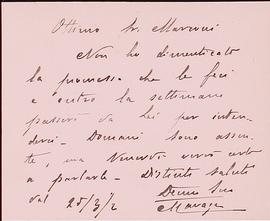 Ottimo Sr. Marconi
Non ho dimenticato
la promessa che le feci
e entro la settimana
passerò da Lei per inten-
derci - Domani sono assen-
te, ma Venerdì verrò certo
a parlarle - Distinti saluti
dal 25/3/